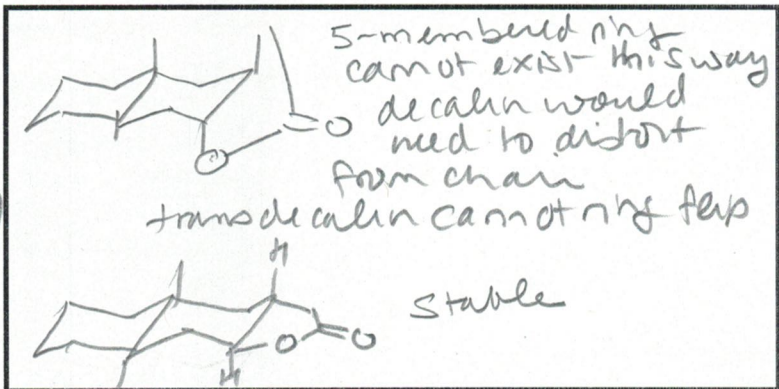 5-membered ring
cannot exist this way
decalin would
need to distort
from chair
O
O
trans decalin cannot ring flip
H
stable
O
O
H